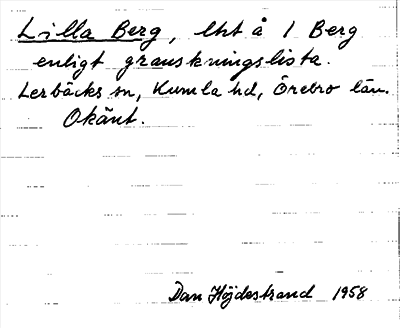 Lilla Berg, lht å 1 Berg
enligt granskningslista.
Lerbäcks sn, Kumla hd, Örebro län.
Okänt.
Dan Höjdestrand 1958